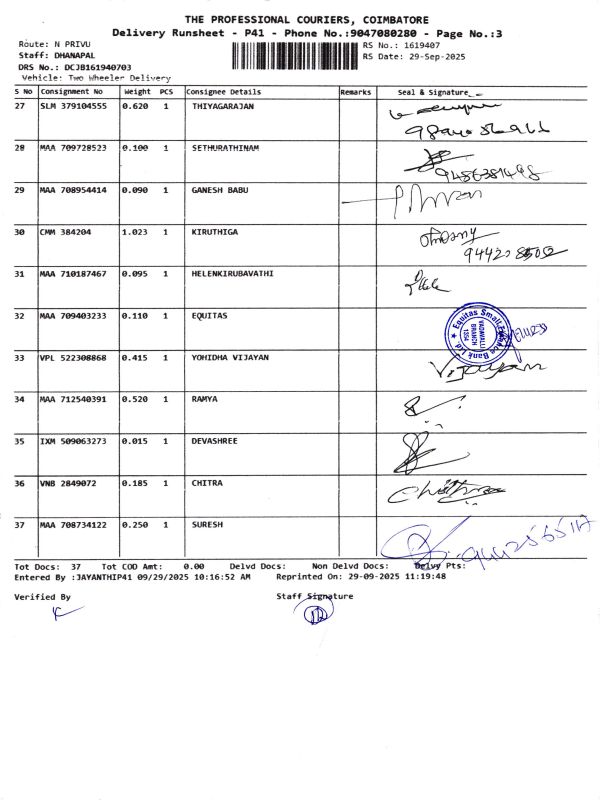 THE PROFESSIONAL COURIERS, COIMBATORE
Delivery Runsheet - P41 - Phone No.:9047080280 - Page No.:3
Route: N PRIVU
RS No.: 1619407
Staff: DHANAPAL
RS Date: 29-Sep-2025
DRS No.: DCJB161940703
Vehicle: Two Wheeler Delivery
S No Consignment No Weight PCS Consignee Details Remarks Seal & Signature
27 SLM 379104555 0.620 1 THIYAGARAJAN
28 MAA 709728523 0.100 1 SETHURATHINAM
29 MAA 708954414 0.090 1 GANESH BABU
30 CMM 384204 1.023 1 KIRUTHIGA
31 MAA 710187467 0.095 1 HELENKIRUBAVATHI
32 MAA 709403233 0.110 1 EQUITAS
Equitas Small Finance Bank Ltd
VADAVALLI
BRANCH
1354
33 VPL 522308868 0.415 1 YOHIDHA VIJAYAN Vijayan
34 MAA 712540391 0.520 1 RAMYA
35 IXM 509063273 0.015 1 DEVASHREE
36 VNB 2849072 0.185 1 CHITRA Chithra
37 MAA 708734122 0.250 1 SURESH
Tot Docs: 37 Tot COD Amt: 0.00 Delvd Docs: Non Delvd Docs: Delvy Pts:
Entered By :JAYANTHIP41 09/29/2025 10:16:52 AM Reprinted On: 29-09-2025 11:19:48
Verified By Staff Signature